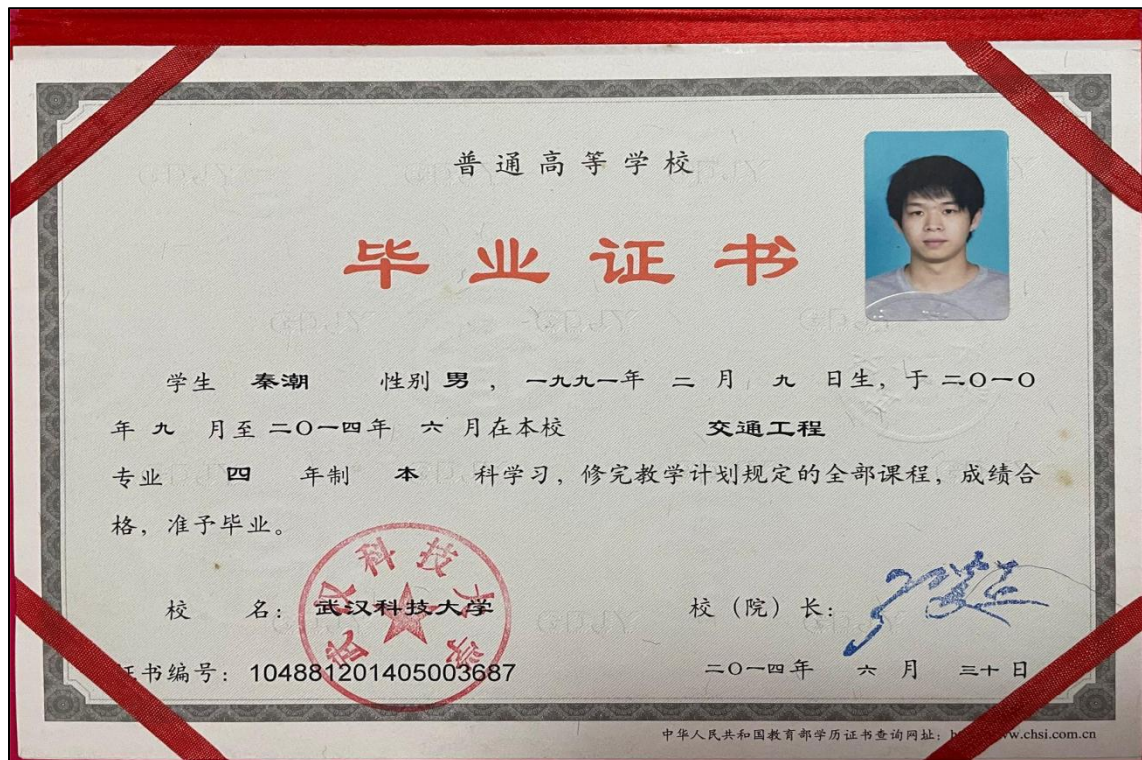 普通高等学校
毕业证书
学生 秦潮 性别 男 ，一九九一年 二 月 九 日生，于 二〇一〇
年 九 月至 二〇一四年 六 月在本校 交通工程
专业 四 年制 本 科学习，修完教学计划规定的全部课程，成绩合
格，准予毕业。
武汉科技大学
校 名：武汉科技大学 校（院）长：
证书编号：104881201405003687 二〇一四年 六 月 三十 日
中华人民共和国教育部学历证书查询网址：w.chsi.com.cn